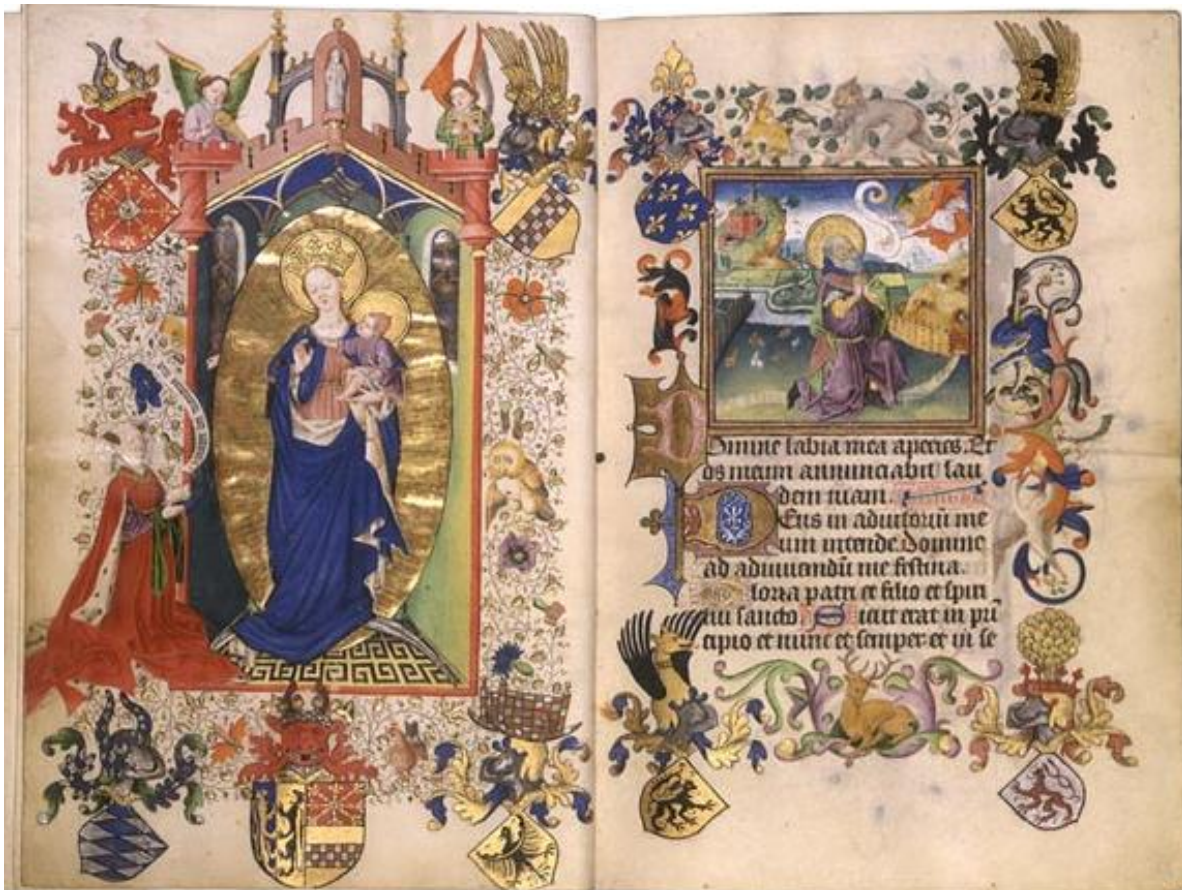 Domine labia mea aperies. Et
os meum annunciabit lau
dem tuam.
Deus in adiutoriū me
um intende. Domine
ad adiuuandū me festina.
loria patri et filio et spiri
tui sancto. Sicut erat in pri
cipio et nunc et semper et in se